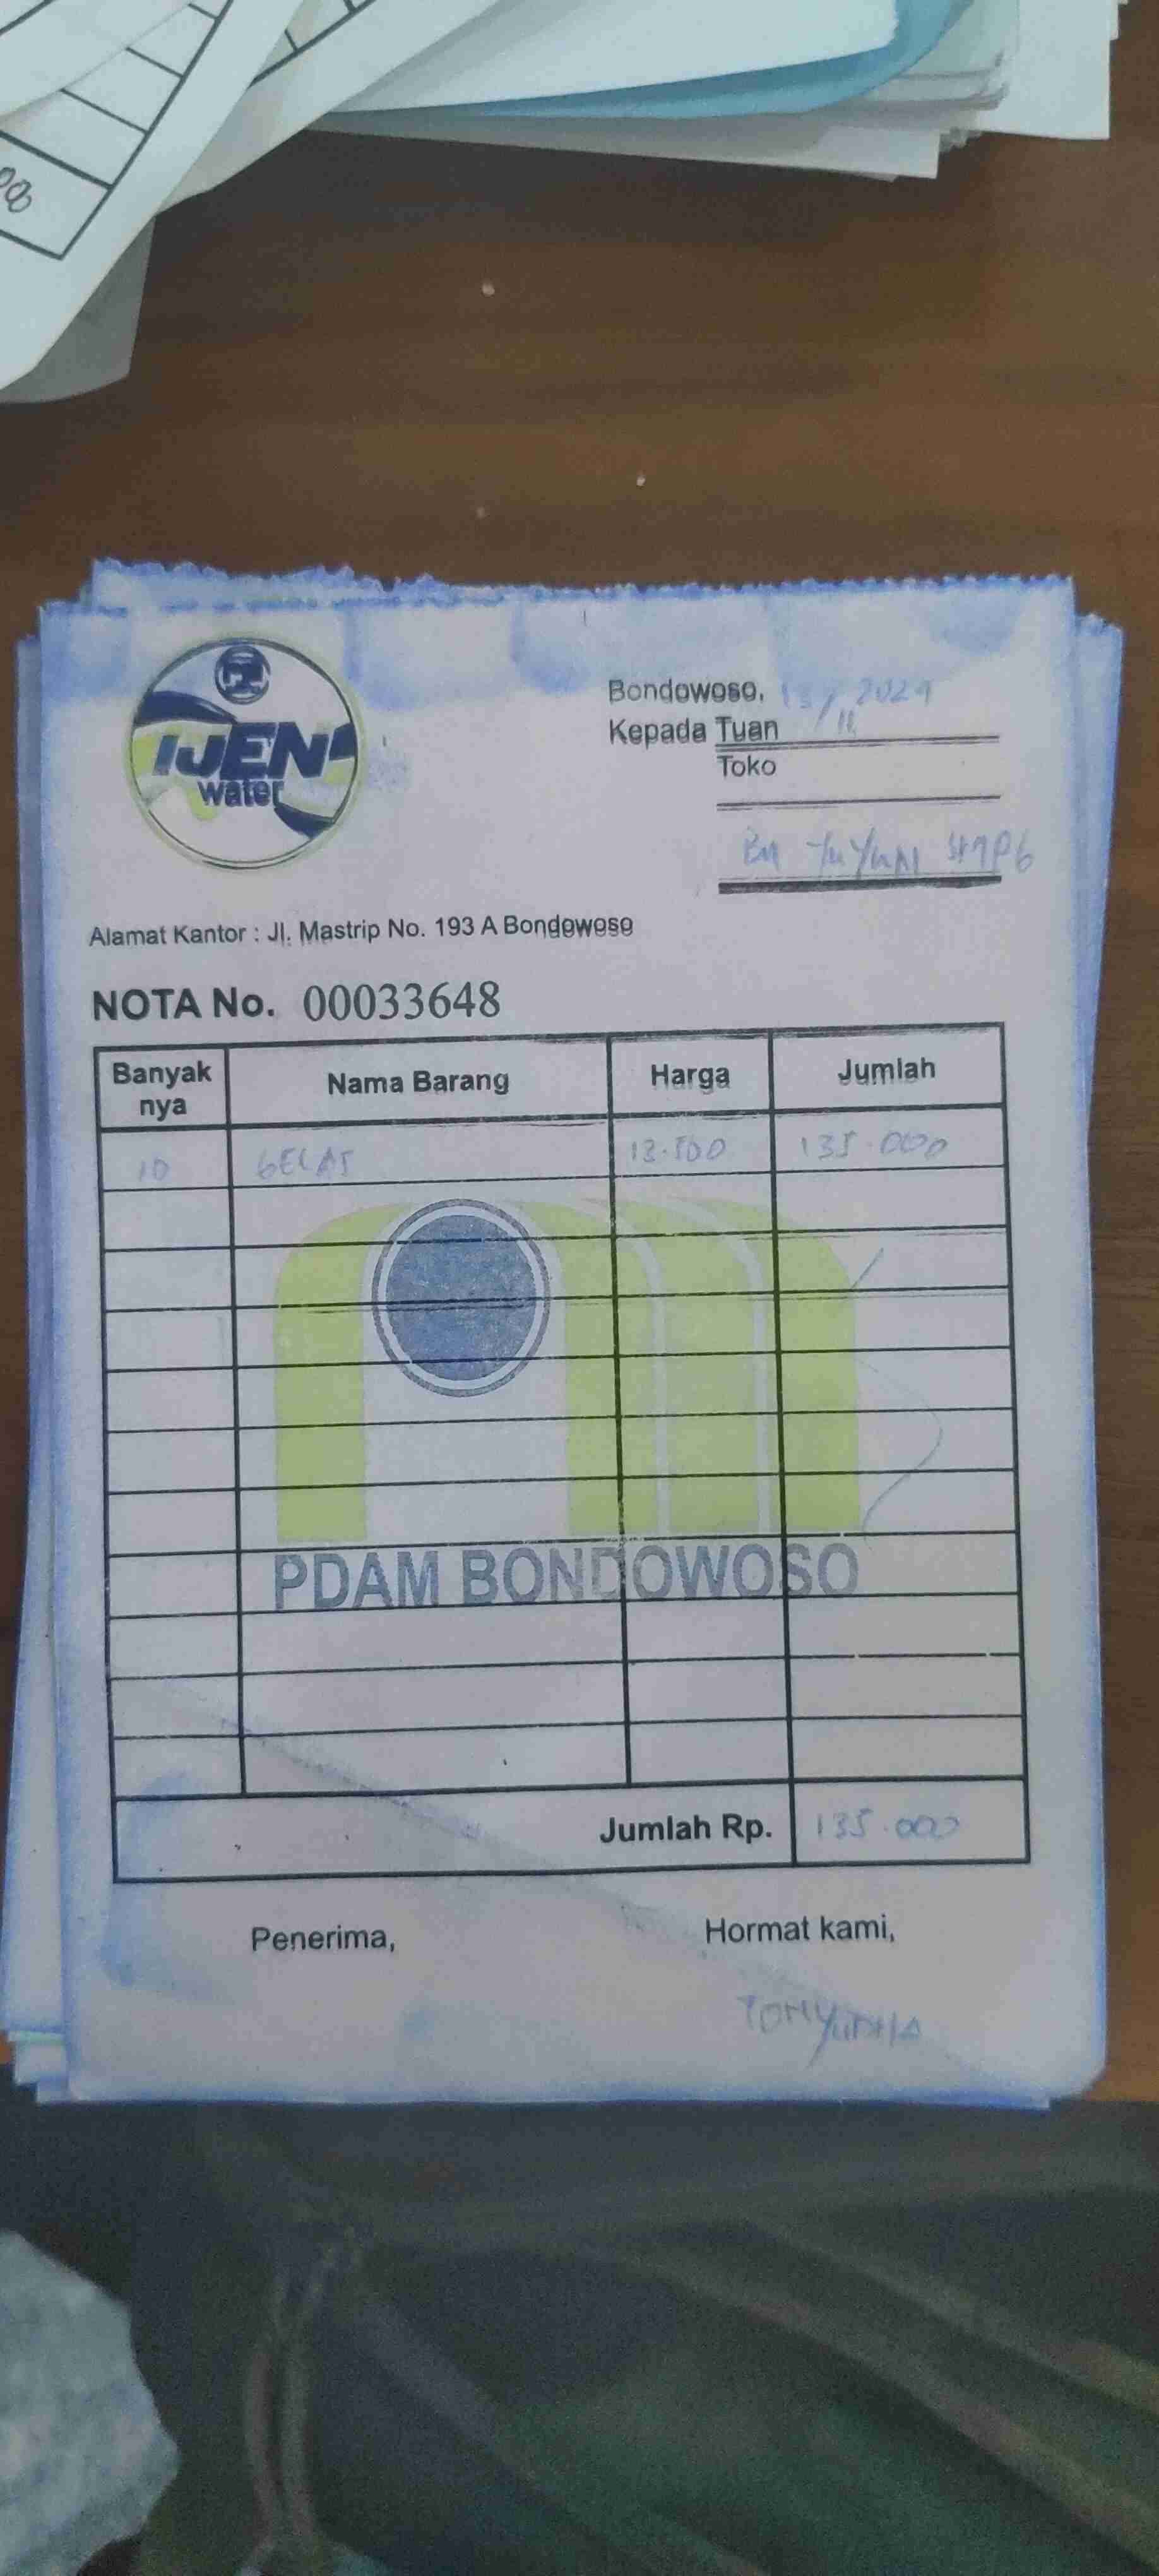 IJEN
water
Bondowoso, 13/11 2024
Kepada Tuan
Toko
Bu Yuyun SMP6
Alamat Kantor : Jl. Mastrip No. 193 A Bondowoso
NOTA No. 00033648
Banyak nya Nama Barang Harga Jumlah
10 GELAS 13.500 135.000
PDAM BONDOWOSO
Jumlah Rp. 135.000
Penerima, Hormat kami,